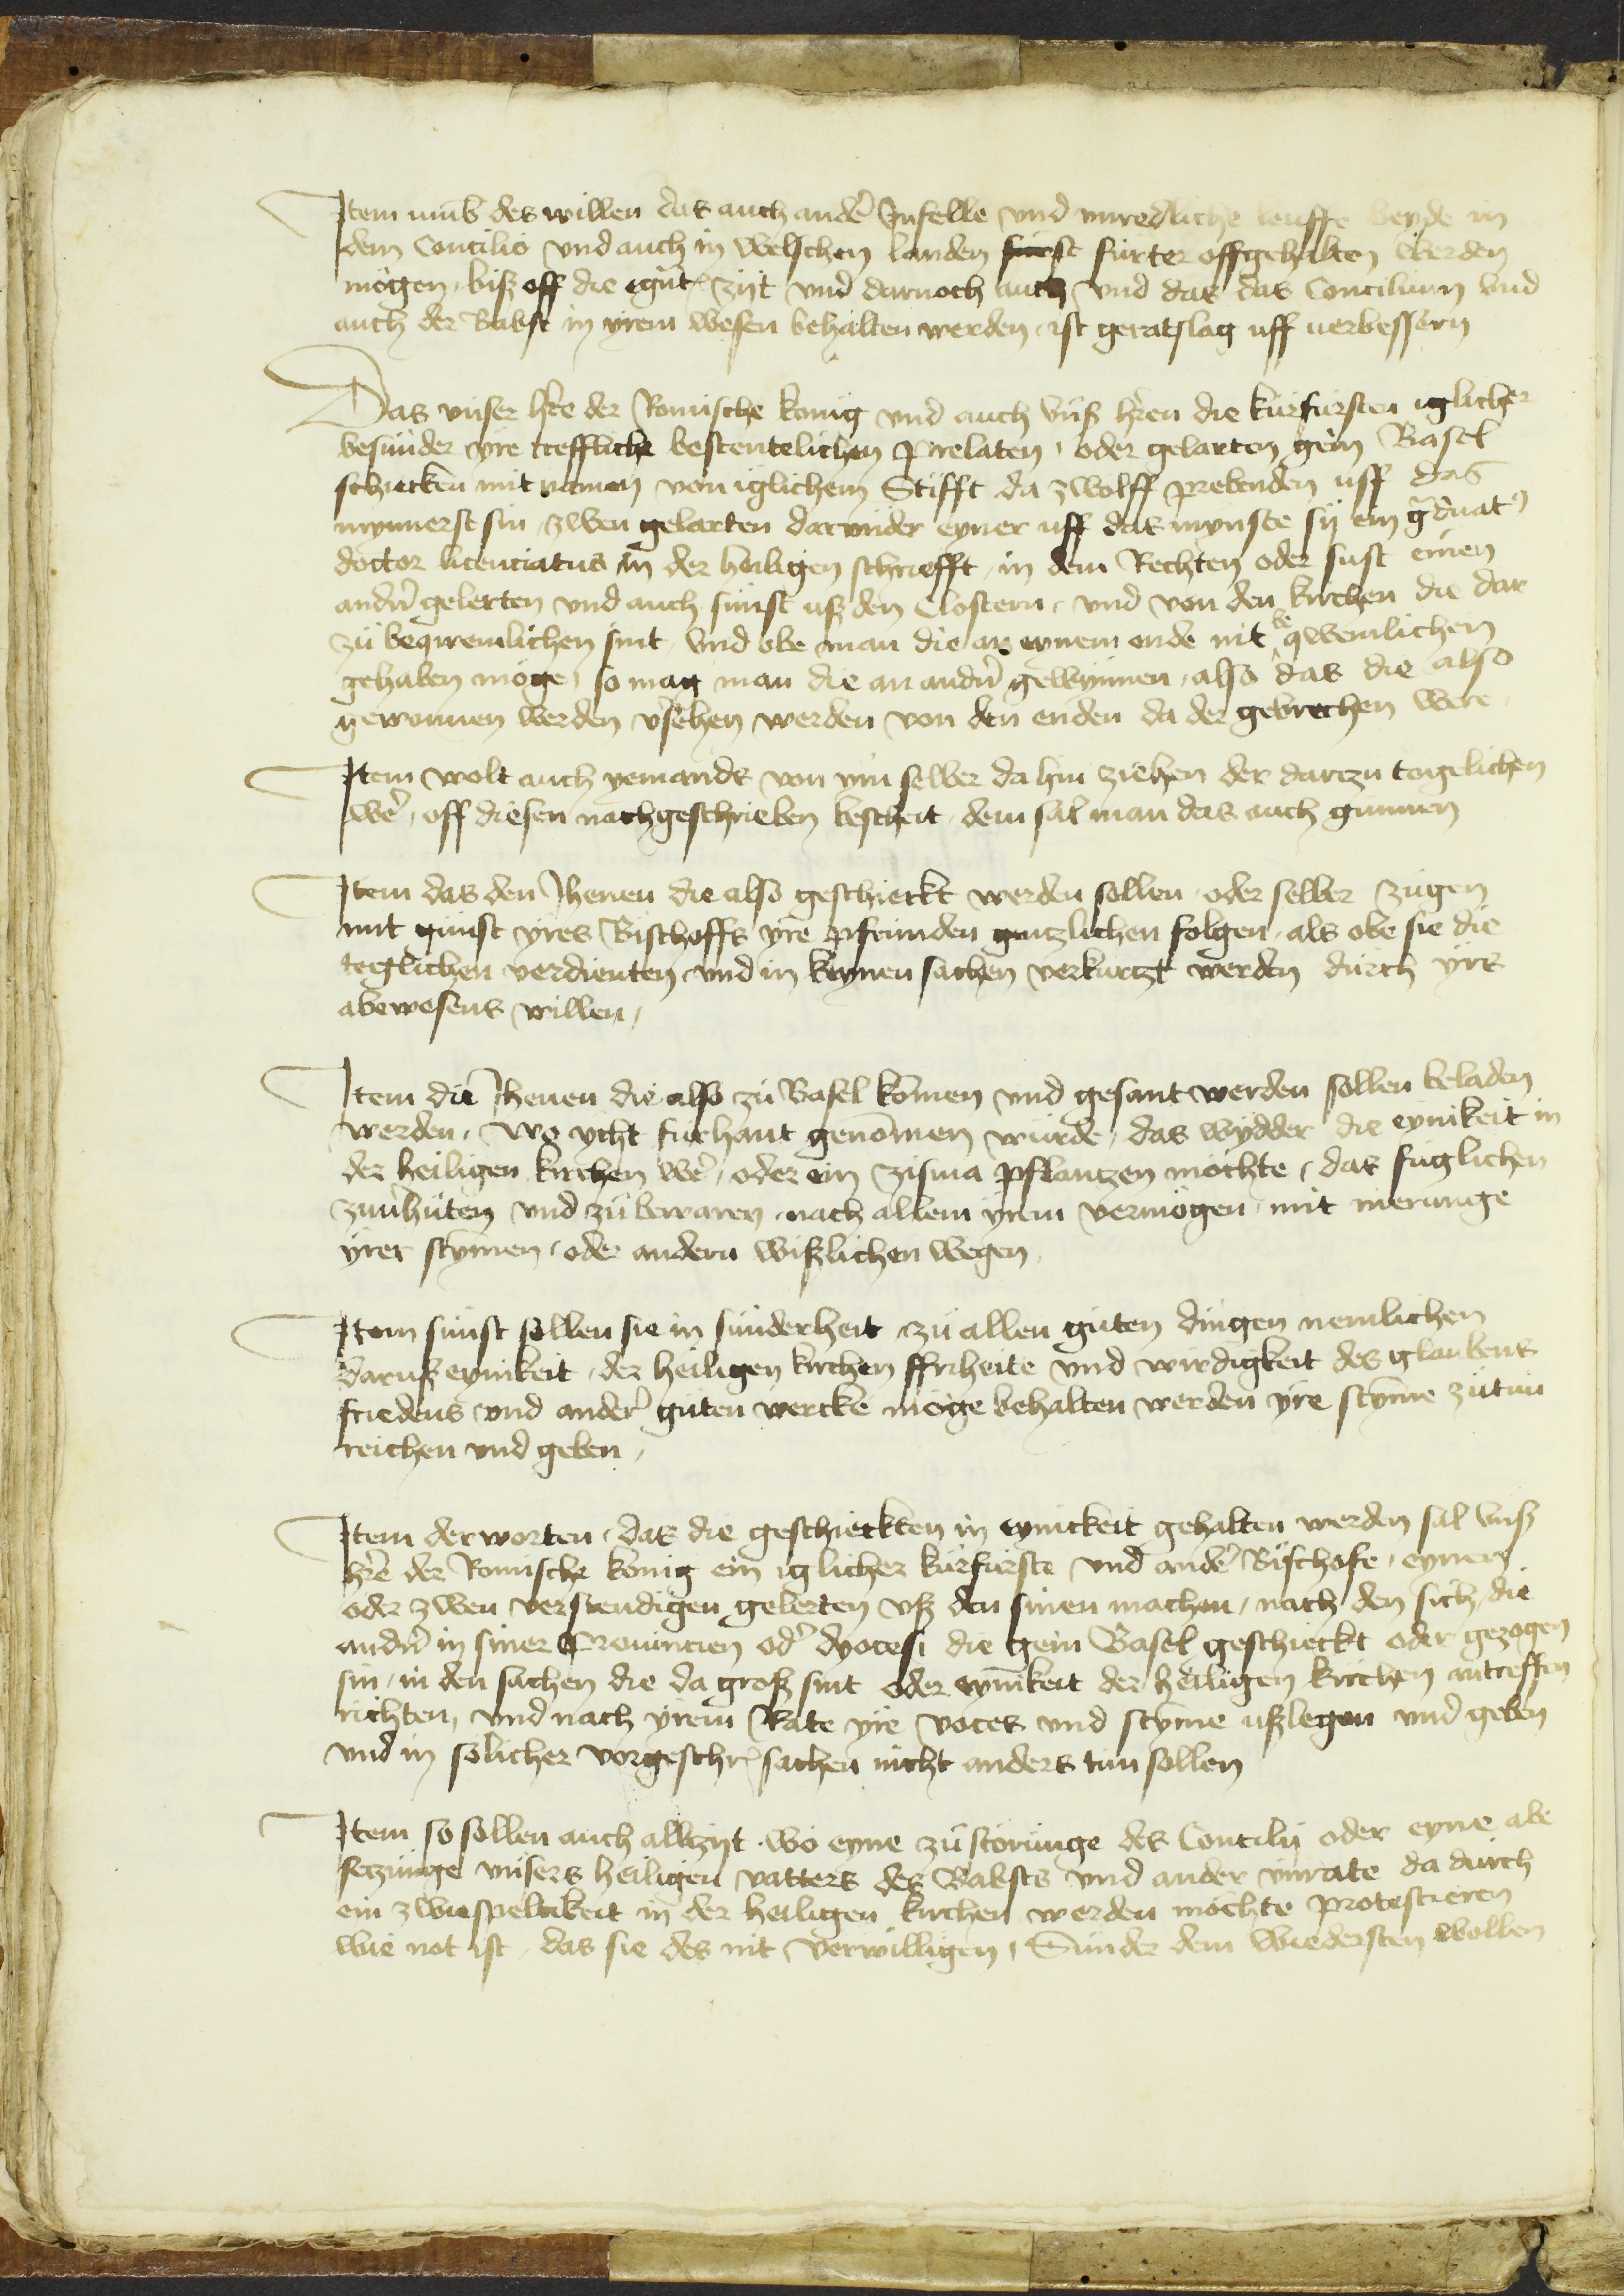 Item umb des willen das auch ander Infelle und unredliche leuffe beyde in
dem Concilio und auch in Welschen landen furst furter offgehalten werden
mogen, biß off die egnt zijt und darnoch auch und das das Concilium und
auch der Babst in yrem wesen behalten werden, ist geratslag uff verbessern
Das unser here der Romische konig und auch unß heren die kurfursten iglicher
besunder yre treffliche bestentelichen prelaten, oder gelarten gein Basel
schicken mit namen von iglichem Stifft da zwolff prebenden uff das
mynnerst sin, zwen gelarten darunder eyner uff das mynste sij ein graduat
doctor licenciatus in der heiligen schriefft, in dem Rechten oder sust einen
andern gelerten und auch sunst uß den Clostern, und von den kirchen die dar
zu beqwemlichen sint, und obe man die an eynem ende nit beqwemlichen
gehaben moge, so mag man die an andern gewynnen, also das die also
gewonnen werden versehen werden von den enden da der gebrechen were,
Item wolt auch yemands von ym selber da hin ziehen der darczu togelichen
were, off diesen nachgeschrieben bescheit, dem sal man das auch gunnen
Item das den Jhenen die also geschickt werden sollen, oder selber zugen
mit gunst yres Bischoffs yre pfrunden gentzlichen folgen, als obe sie die
teglichen verdienten, und in keynen sachen verkurtzt werden durch yrs
abewesens willen,
Item die Jhenen die also zu Basel komen und gesant werden sollen beladen
werden, wo ycht furhant genommen wurde, das wydder die eynikeit in
der heiligen kirchen were, oder ein zisma pflantzen mochte, das fuglichen
zuverhuten und zubewaren, nach allem yrem vermogen, mit merunge
yrer stymen, oder andern wißlichen wegen
Item sunst sollen sie in sunderheit, zu allen guten dingen nemlichen
daruß eynikeit, der heiligen kirchen ffriheite und wirdigkeit des glaubens
friedens und ander guten wercke moge behalten werden yre stymme zutun
reichen und geben,
Item der worten, das die geschickten in eynickeit gehalten werden sal unß
here der Romische konig ein iglicher kurfurste und ander Bischofe, eynen
oder zwen verstendigen gelerten uß den sinen machen, nach den sich die
andern in siner Provincien oder dyocesi die gein Basel geschickt oder gezogen
sin, in den sachen die da groß sint oder eynikeit der heiligen kirchen antreffen
richten, und nach yrem Rate yre voces und styme ußlegen und geben
und in solicher vorgeschr sachen nicht anders tun sollen
Item so sollen auch allzijt, wo eyne zustorunge des Concilij oder eyne abe
setzunge unsers heiligen vatters des Babsts und ander unrate da durch
ein zwuspeltikeit in der heiligen kirchen werden mochte protestieren
wie not ist, das sie des nit verwilligen, Sunder dem wiedersten wollen